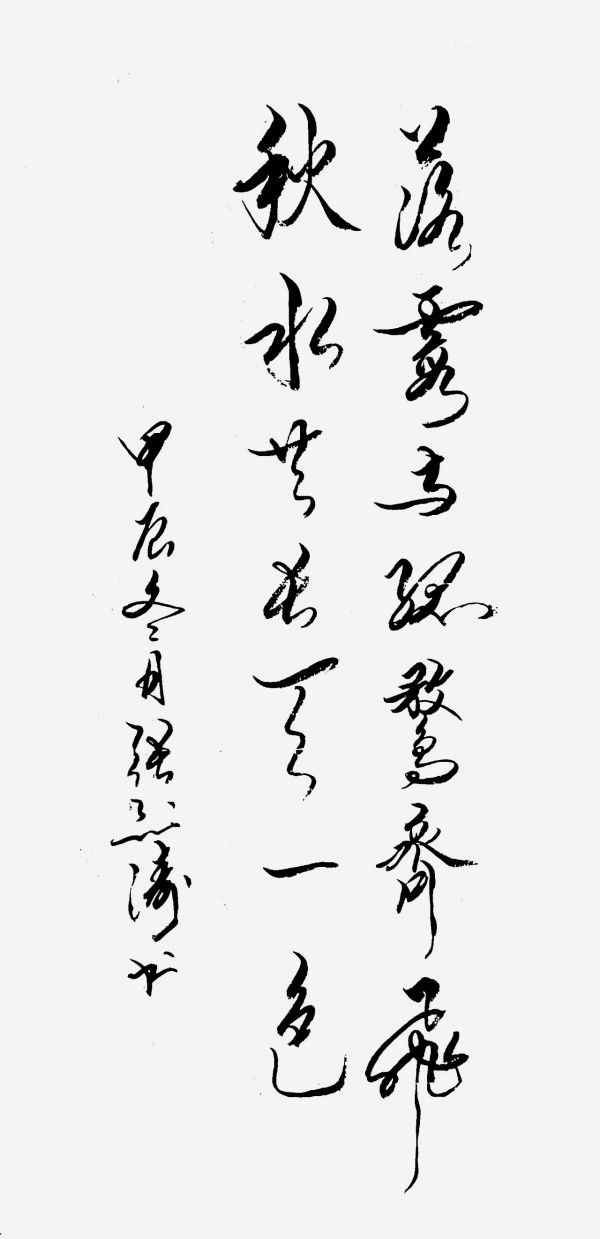 落霞与孤鹜齐飛
秋水共长天一色
甲辰冬月张涛书